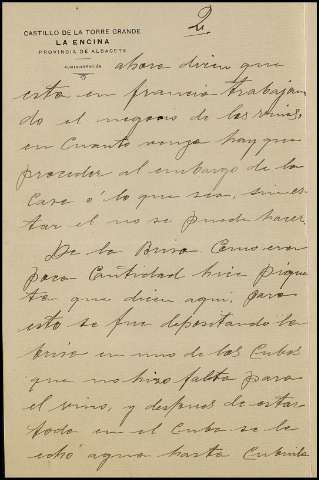 2
CASTILLO DE LA TORRE GRANDE
LA ENCINA
PROVINCIA DE ALBACETE
ADMINISTRACIÓN
ahora dicen que
esta en francia trabajan
do el negocio de los vinos,
en cuanto venga hay que
proceder al embargo de la
Casa ó lo que sea, sin es
tar el no se puede hacer.
De la Brisa Como era
poca Cantidad hice pique
ta que dicen aqui, para
esto se fue depositando la
brisa en uno de los Cubos
que no hizo falta para
el vino, y despues de estar
todo en el Cubo se le
echó agua hasta Cubrirla